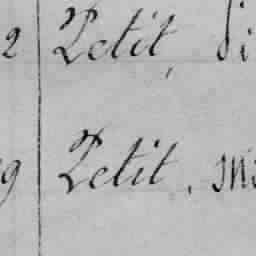 2 Petit,
9 Petit,